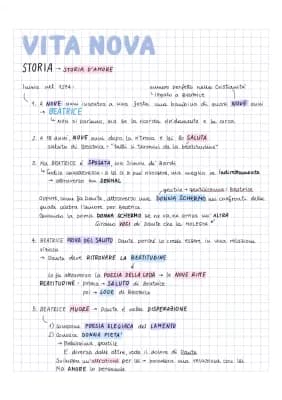 VITA NOVA
STORIA → STORIA D'AMORE
Inizia nel 1274: numero perfetto nella Cristianità
legato a Beatrice
1. A NOVE anni incontra a una festa una bambina di quasi NOVE anni
→ BEATRICE
↳ Non si parlano, ma se la ricorda ardentemente e la cerca
2. A 18 anni, NOVE anni dopo la ritrova e lei lo SALUTA
saluto di Beatrice = "tutti li termini de la beatitudine"
3. Ma BEATRICE è SPOSATA con Simone de' Bardi
↳ Codice comportamento: a lei ci si può rivolgere, ma meglio se indirettamente
→ attraverso un SENHAL
gentile - gentilissima = Beatrice
oppure, come fa Dante, attraverso una DONNA SCHERMO nei confronti della
quale ostenta l'amore per Beatrice.
Quando la prima DONNA SCHERMO se ne va, ne arriva un'ALTRA
Girano VOCI di Dante che la molesta
4. BEATRICE PRIVA DEL SALUTO Dante perché lo crede essere in una relazione
→ Dante deve RITROVARE LA BEATITUDINE
lo fa attraverso la POESIA DELLA LODE → le NOVE RIME
BEATITUDINE: prima → SALUTO di Beatrice
poi → LODE di Beatrice
5. BEATRICE MUORE → Dante è nella DISPERAZIONE
1) scrive POESIA ELEGIACA del LAMENTO
2) Conosce DONNA PIETA'
→ Bellissima, gentile
È diversa dalle altre, vede il dolore di Dante
Sviluppa un'attrazione per lei → potrebbe una relazione con lei
MA AMORE lo